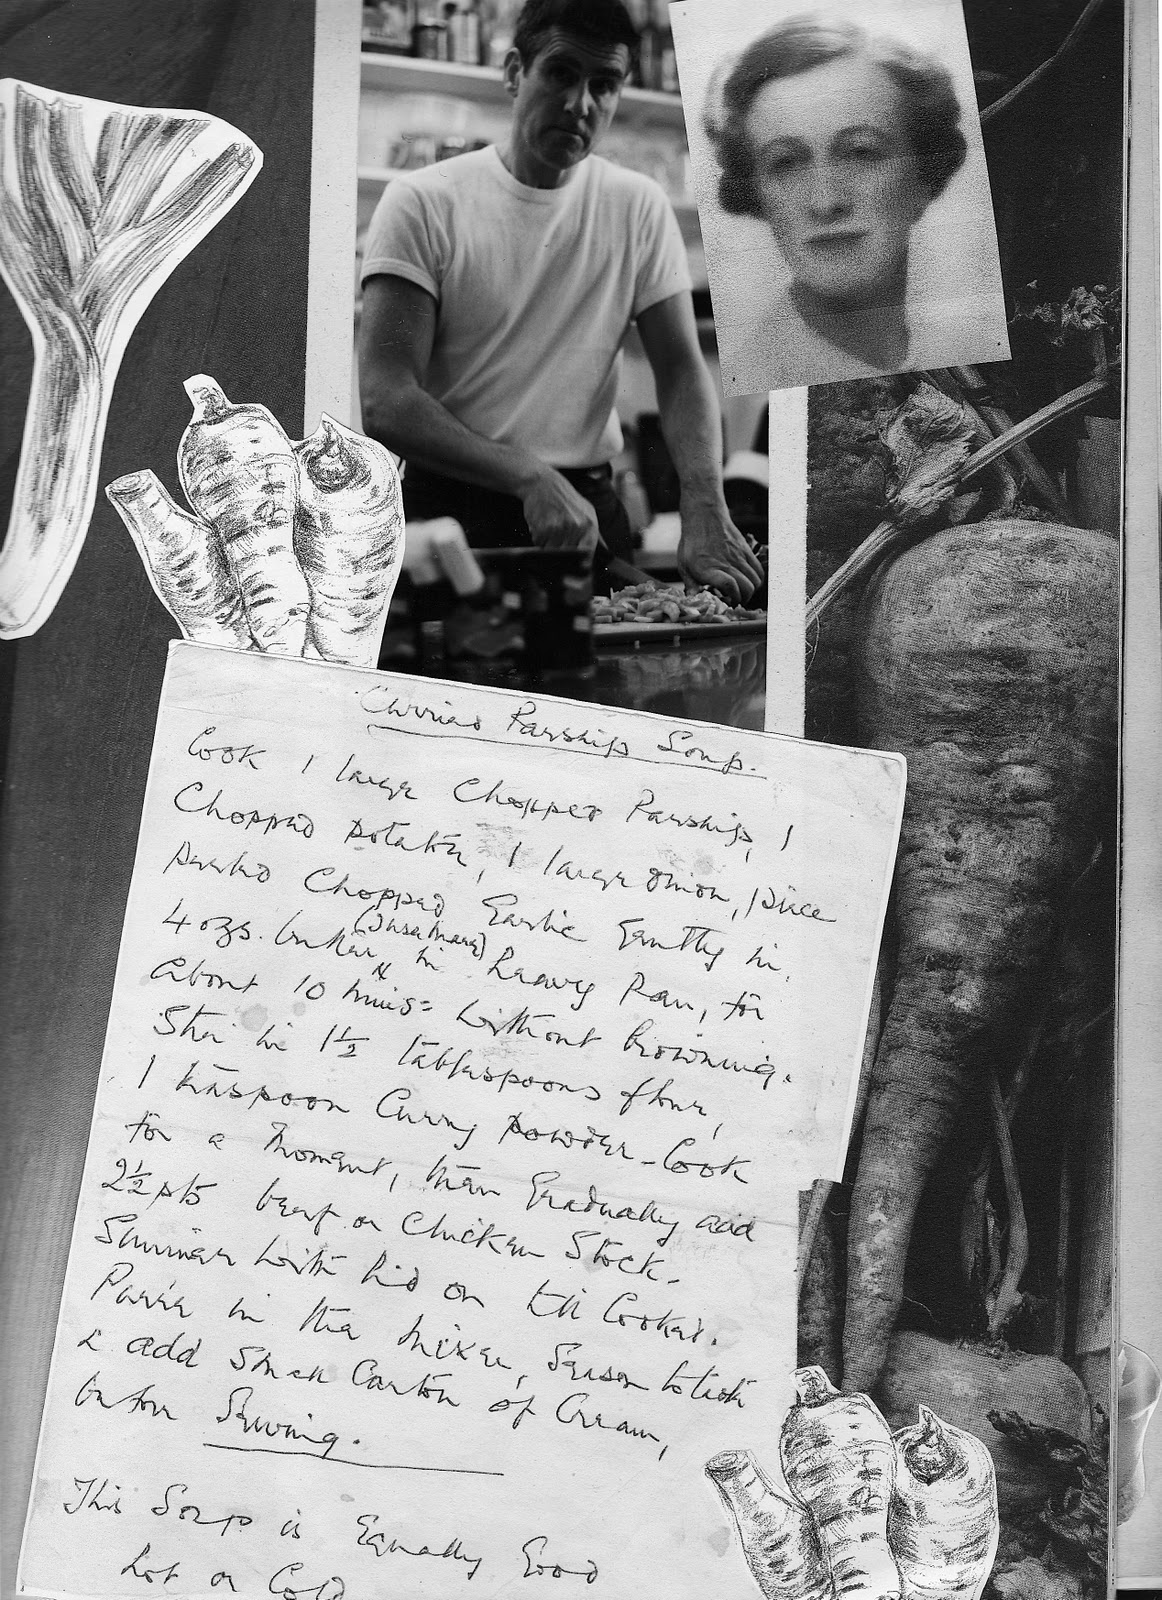 Curried Parsnip Soup.
Cook 1 large Chopped Parsnip, 1
Chopped potatoe, 1 large onion, piece
Chopped Garlic Gently in
4 ozs. butter in heavy Pan, for
about 10 mins = without browning.
Stir in 1½ tablespoons flour,
1 teaspoon Curry powder - Cook
for a moment, then Gradually add
2½ pts beef or Chicken Stock -
Simmer with lid on till Cooked.
Purée in the mixer, Season to taste
& add Small Carton of Cream,
before Serving.
This Soup is Equally Good
hot or Cold